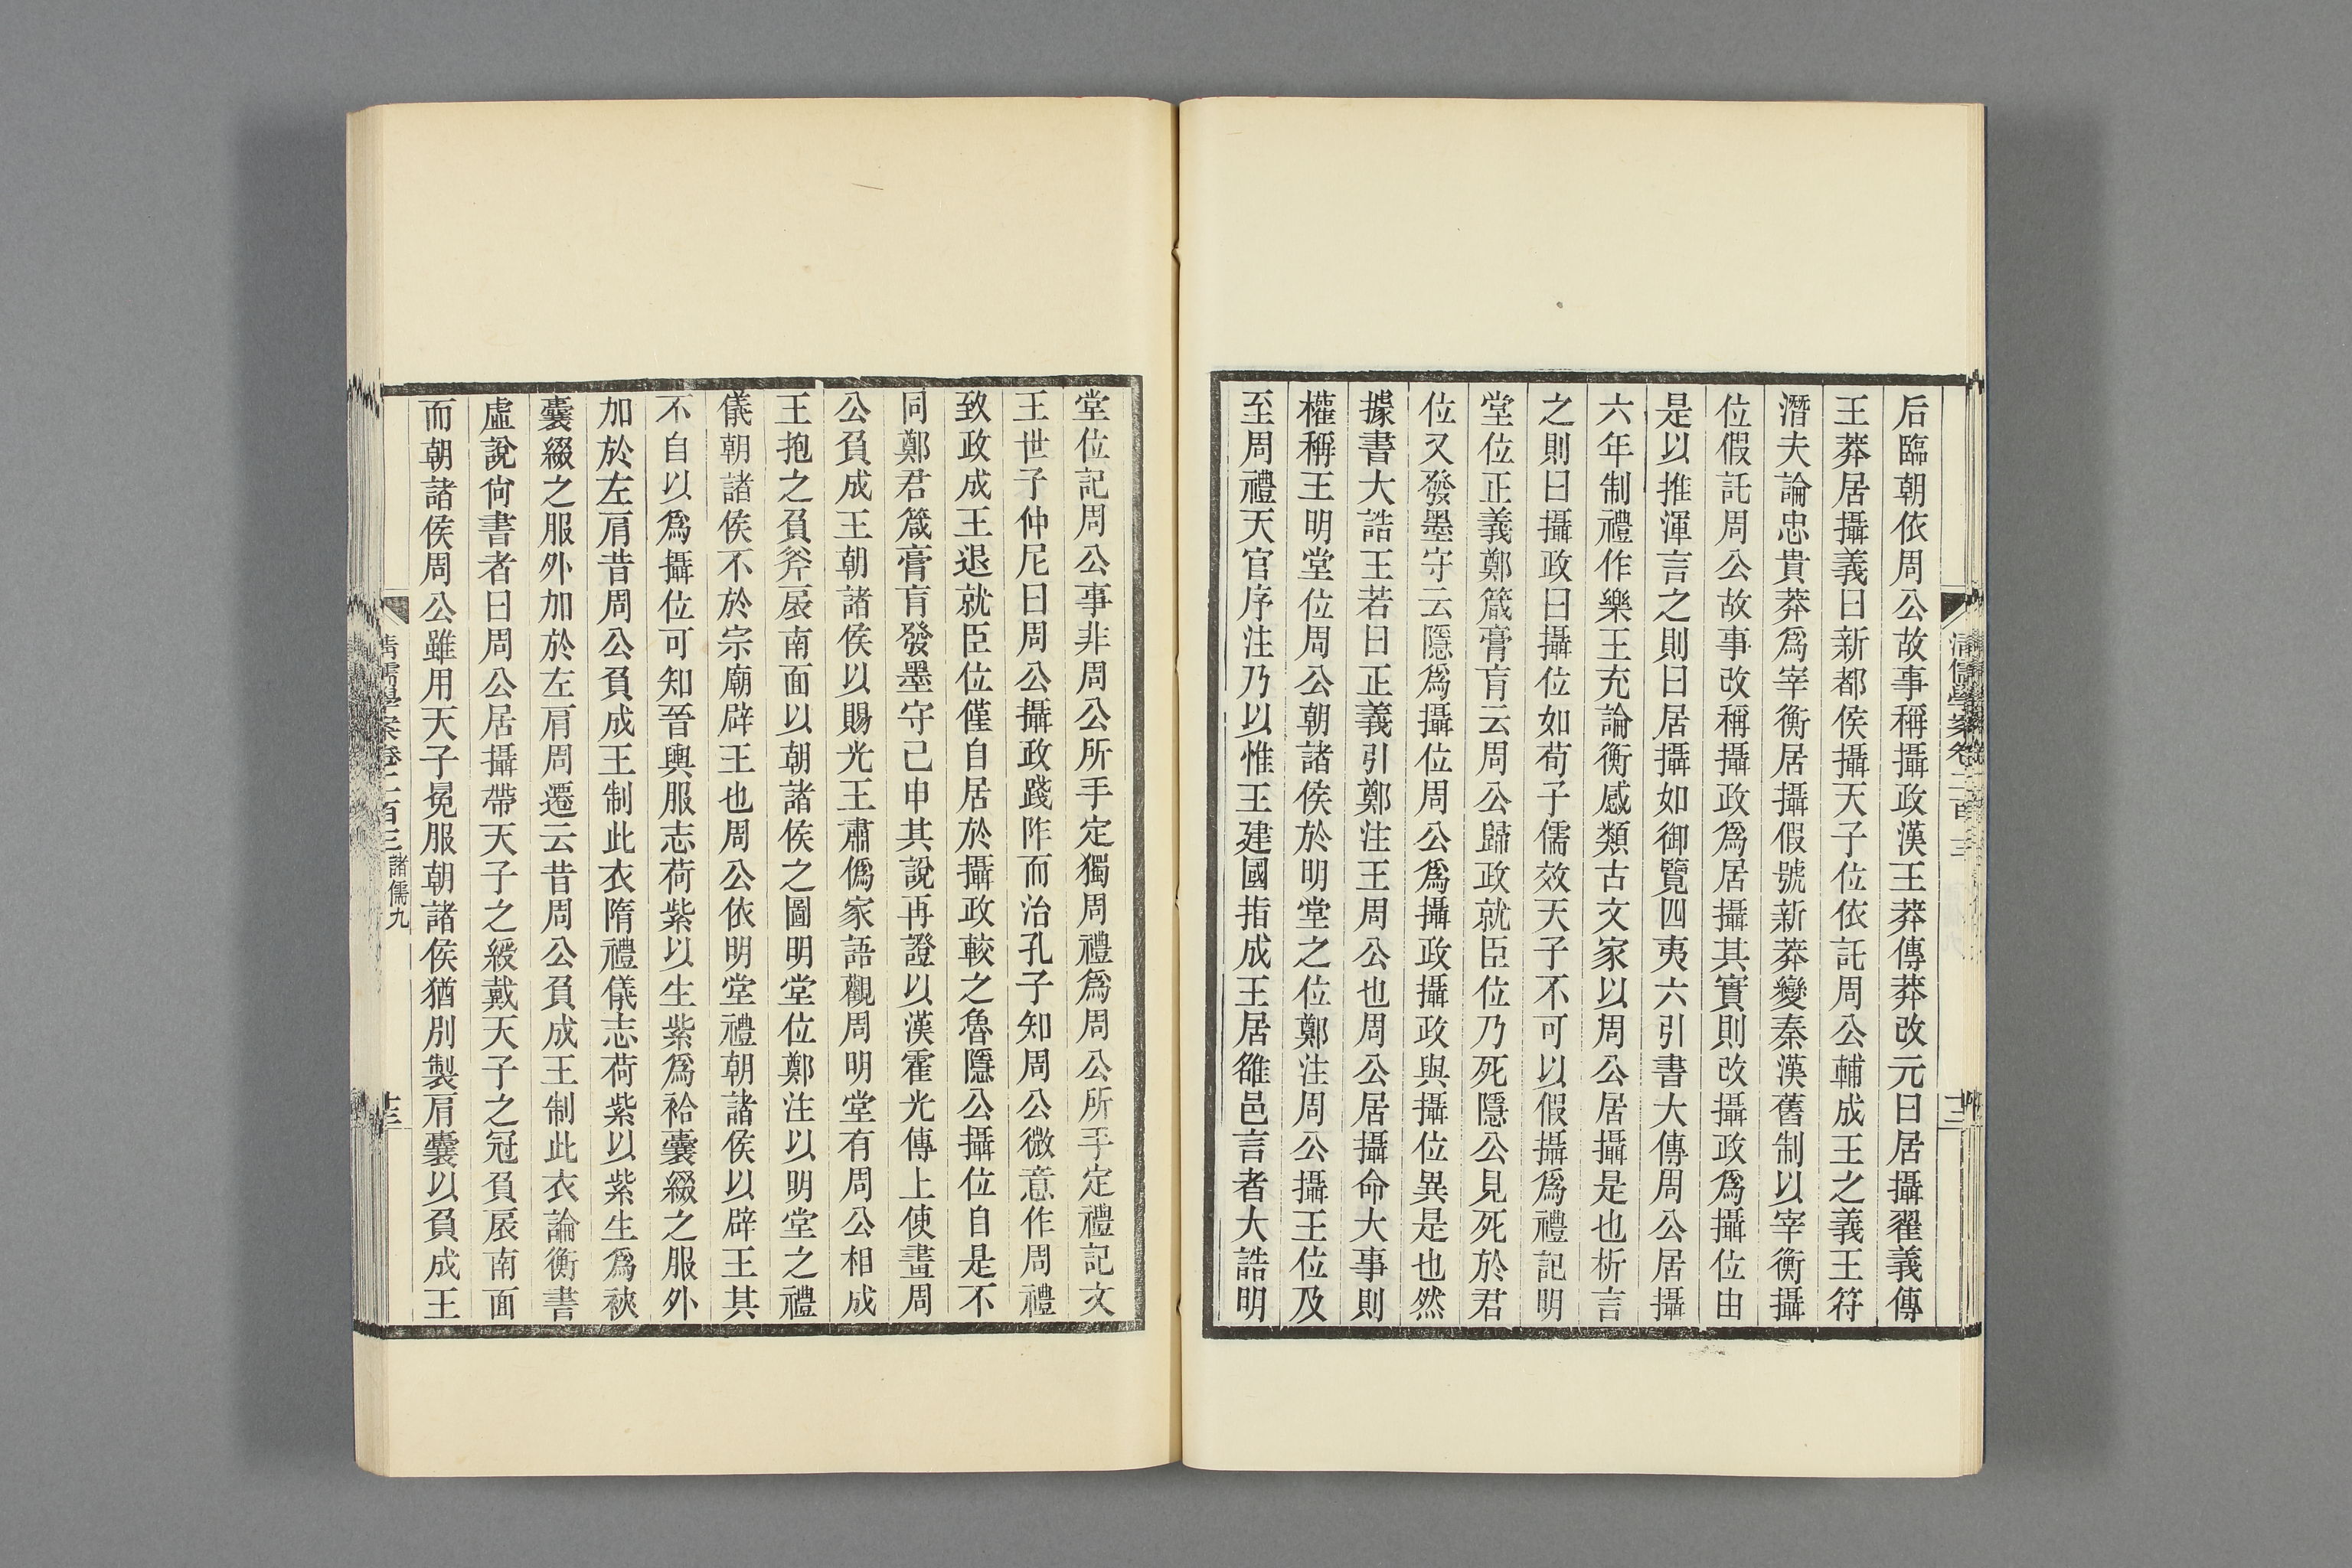 后臨朝依周公故事稱攝政漢王莽傳莽改元曰居攝翟義傳
王莽居攝義曰新都侯攝天子位依託周公輔成王之義王符
潛夫論忠貴莽爲宰衡居攝假號新莽變秦漢舊制以宰衡攝
位假託周公故事改稱攝政爲居攝其實則改攝政爲攝位由
是以推渾言之則曰居攝如御覽四夷六引書大傳周公居攝
六年制禮作樂王充論衡感類古文家以周公居攝是也析言
之則曰攝政曰攝位如荀子儒效天子不可以假攝爲禮記明
堂位正義鄭箴膏肓云周公歸政就臣位乃死隱公見死於君
位又發墨守云隱爲攝位周公爲攝政攝政與攝位異是也然
據書大誥王若曰正義引鄭注王周公也周公居攝命大事則
權稱王明堂位周公朝諸侯於明堂之位鄭注周公攝王位及
至周禮天官序注乃以惟王建國指成王居雒邑言者大誥明
清儒學案卷二百三
堂位記周公事非周公所手定獨周禮爲周公所手定禮記文
王世子仲尼曰周公攝政踐阼而治孔子知周公微意作周禮
致政成王退就臣位僅自居於攝政較之魯隱公攝位自是不
同鄭君箴膏肓發墨守已申其說再證以漢霍光傳上使畫周
公負成王朝諸侯以賜光王肅僞家語觀周明堂有周公相成
王抱之負斧扆南面以朝諸侯之圖明堂位鄭注以明堂之禮
儀朝諸侯不於宗廟辟王也周公依明堂禮朝諸侯以辟王其
不自以爲攝位可知晉輿服志荷紫以生紫爲袷囊綴之服外
加於左肩昔周公負成王制此衣隋禮儀志荷紫以紫生爲裌
囊綴之服外加於左肩周遷云昔周公負成王制此衣論衡書
虛說尙書者曰周公居攝帶天子之綬戴天子之冠負扆南面
而朝諸侯周公雖用天子冕服朝諸侯猶別製肩囊以負成王
清儒學案卷二百三 諸儒九 十三